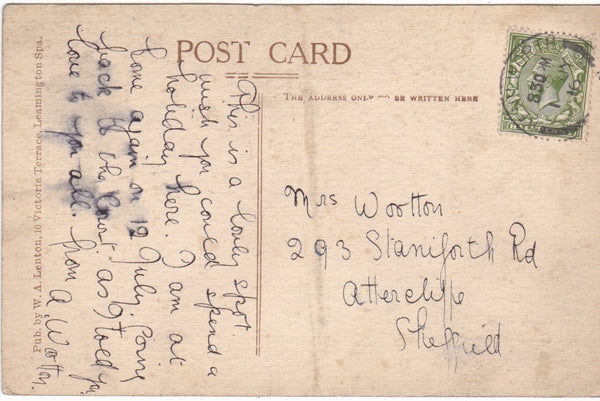 POST CARD
THE ADDRESS ONLY TO BE WRITTEN HERE
Pub. by W. A. Lenton, 10 Victoria Terrace, Leamington Spa.
This is a lovely spot.
wish you could spend a
holiday here. I am at
home again on 12 July. Going
back to the Court as I told you
love to you all. from A. Wootton.
Mrs Wootton
293 Staniforth Rd
Attercliffe
Sheffield
8.30 PM
16